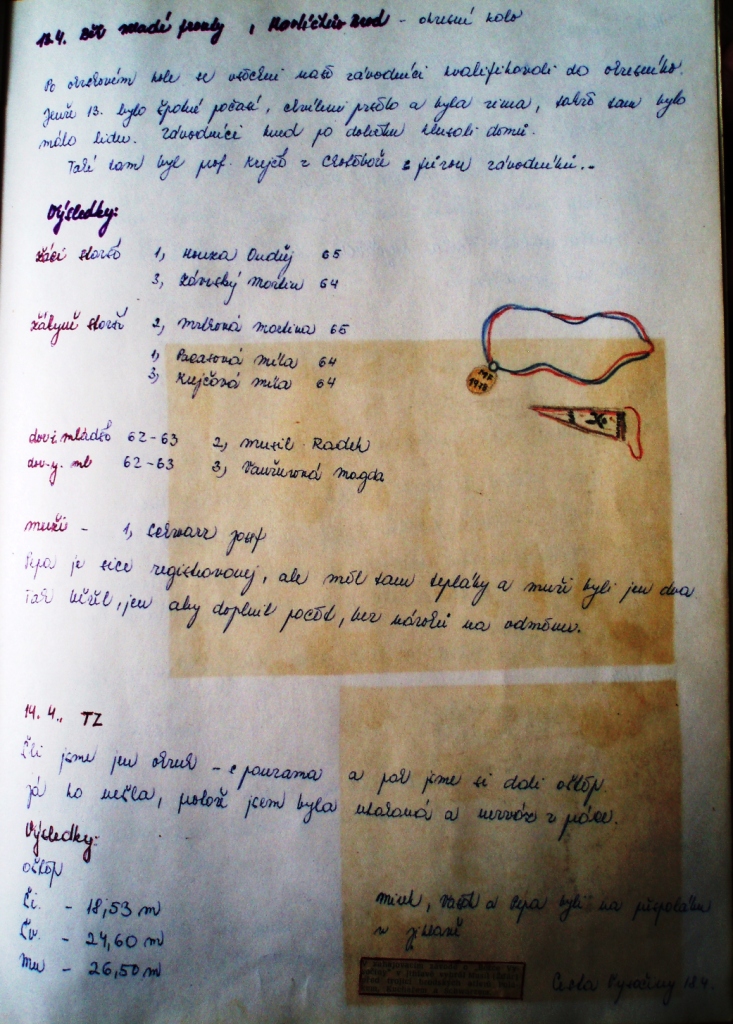 13.4. Běh mladé fronty, Havlíčkův Brod - okresní kolo
Po obvodovém kole se všichni naši závodníci kvalifikovali do okresního.
Jenže 13. bylo špatné počasí, chvílemi pršelo a byla zima, takže tam bylo
málo lidu. Závodníci hned po doběhu klusali domů.
Také tam byl prof. Krejčí z Chotěboře s párou závodníků.-
Výsledky:
žáci starší 1, Houza Ondřej 65
3, Závorský Martin 64
žákyně starší 2, Martina 65
1, Míla 64
3, Krejčová Míla 64
dor-i mladší 62-63 2, Musil Radek
dor-y. ml 62-63 3, Vavřinová Magda
muži - 1, Schwarz Josef
Pepa je sice registrovanej, ale měl tam tepláky a muži byli jen dva
Tak běžel, jen aby doplnil počet, bez nároků na odměnu.
14. 4., TZ
Šli jsme jen okruh - s pauzama a pak jsme si dali oštěp.
Já ho nešla, protože jsem byla utahaná a nervóz z práce.
Výsledky:
oštěp
Či. - 18,53 m
Čv. - 24,60 m
Mu - 26,50 m
Mich, Vašek a Pepa byli na přespoláku
v Jihlavě
Cesta Vysočiny 18.4.